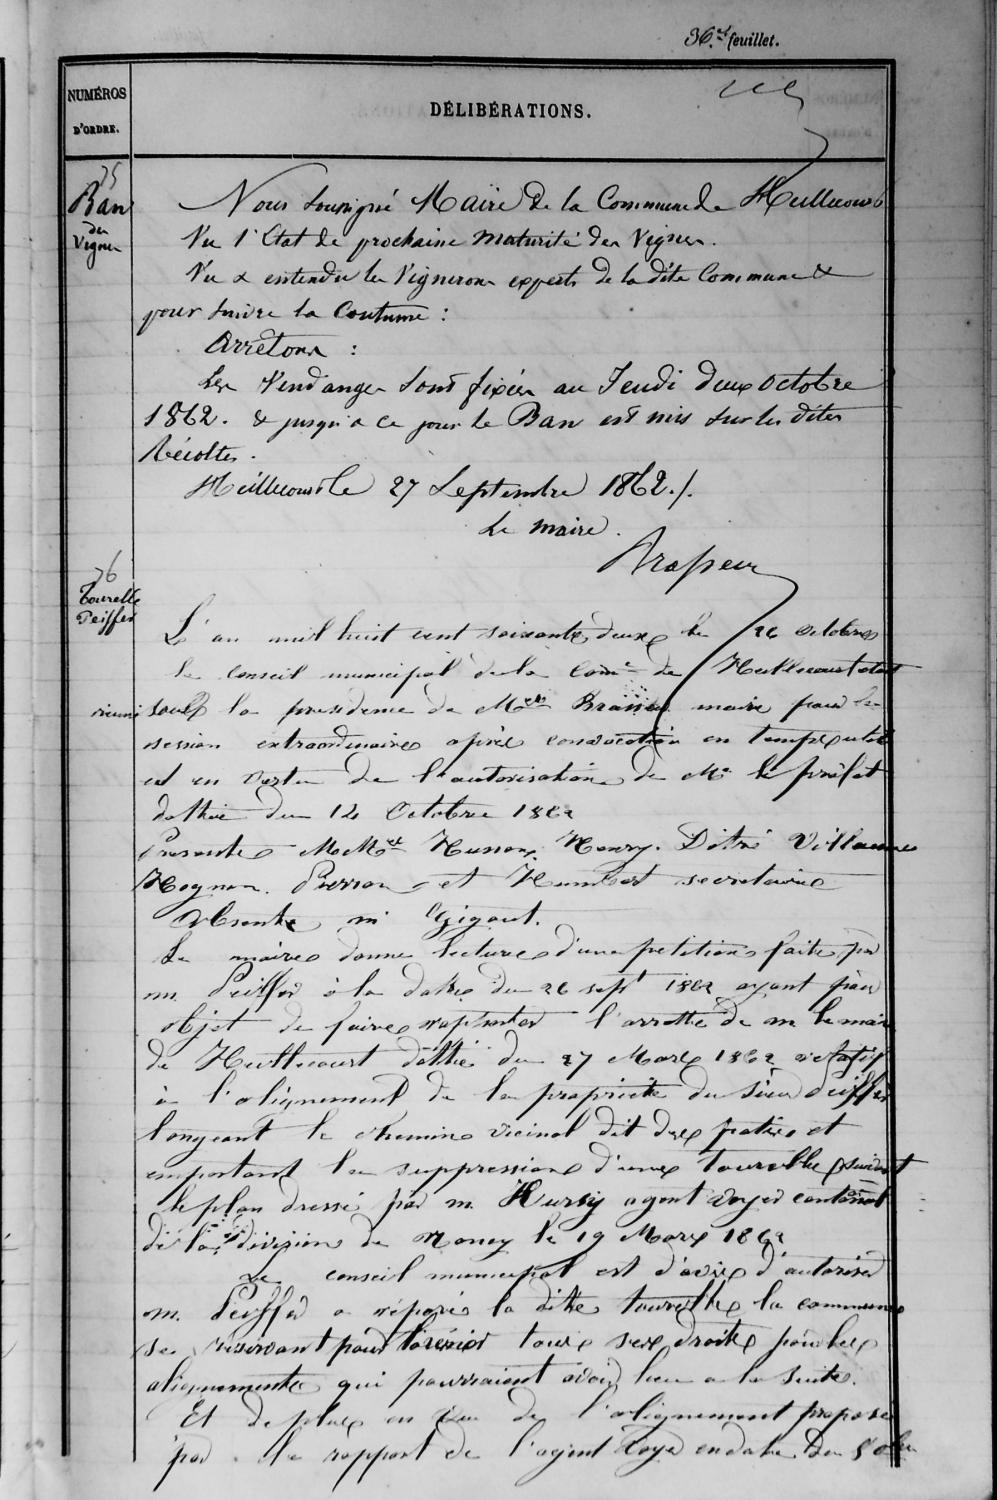 36.e feuillet.
NUMÉROS
D'ORDRE.
DÉLIBÉRATIONS.
75
Ban
des
Vignes
Nous soussigné Maire de la Commune de Heillecourt
Vu l'Etat de prochaine maturité des Vignes.
Vu & entendu les Vignerons experts de la dite Commune &
pour suivre la Coutume :
Arrêtons :
Les Vendanges sont fixées au Jeudi deux Octobre
1862. & jusqu'à ce jour le Ban est mis sur les dites
Récoltes.
Heillecourt le 27 Septembre 1862./.
Le maire.
76
Tourelle
Peiffer
L'an mil huit cent soixante deux le 26 octobre
le conseil municipal de la Come de Heillecourt etant
reuni sous la presidence de Mr maire pour la
session extraordinaire après convocation en temps utile
et en vertu de l'autorisation de Mr le préfet
dattée du 12 Octobre 1862
Presents MMrs Husson, Henry. Ditré Villaume
Hognon. Pierron et Humbert secretaire
Absents m Gigout.
Le maire donne lecture d'une petition faite par
m. Peiffer à la date du 26 sept 1862 ayant pour
objet de faire rapporter l'arretté de m le maire
de Heillecourt dattée du 27 Mars 1862 relatif
à l'alignement de la propriété du sieur Peiffer
longeant le chemin vicinal dit des patis et
emportant la suppression d'une tourelle suivant
le plan dressé par m. Hursy agent voyer cantonal
de la division de Nancy le 19 Mars 1862
Le conseil municipal est d'avis d'autoriser
m. Peiffer a réparer la dite tourelle la commune
se réservant pour tous ses droits pour les
alignements qui pourraient avoir lieu a la suite.
Et de plus en vue de l'alignement proposé
par le rapport de l'agent voyer en date du 5